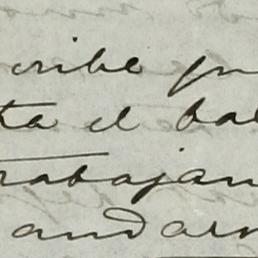 cribe pu
ta el bai
trabajan
andar